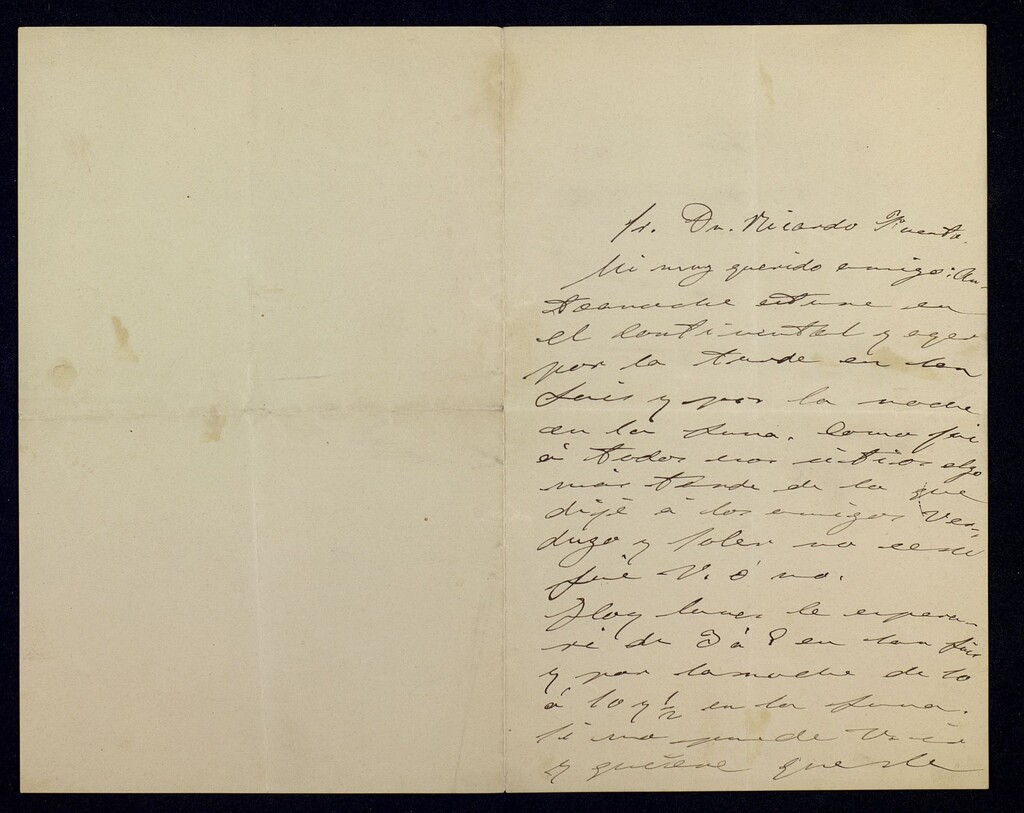 Sr. Dn. Ricardo Fuente.
Mi muy querido amigo: An-
teanoche estuve en
el Continental y ayer
por la tarde en
y por la noche
en la
Como fui
à todos esos sitios algo
mas tarde de lo que
dije à los amigos Ver-
dugo y Soler no se si
fué V. ó no.
Hoy lunes le espera-
ré de 3 à 8 en
y por la noche de 10
à 10 y ½ en la
Si no puede V. ir
y quiere que le